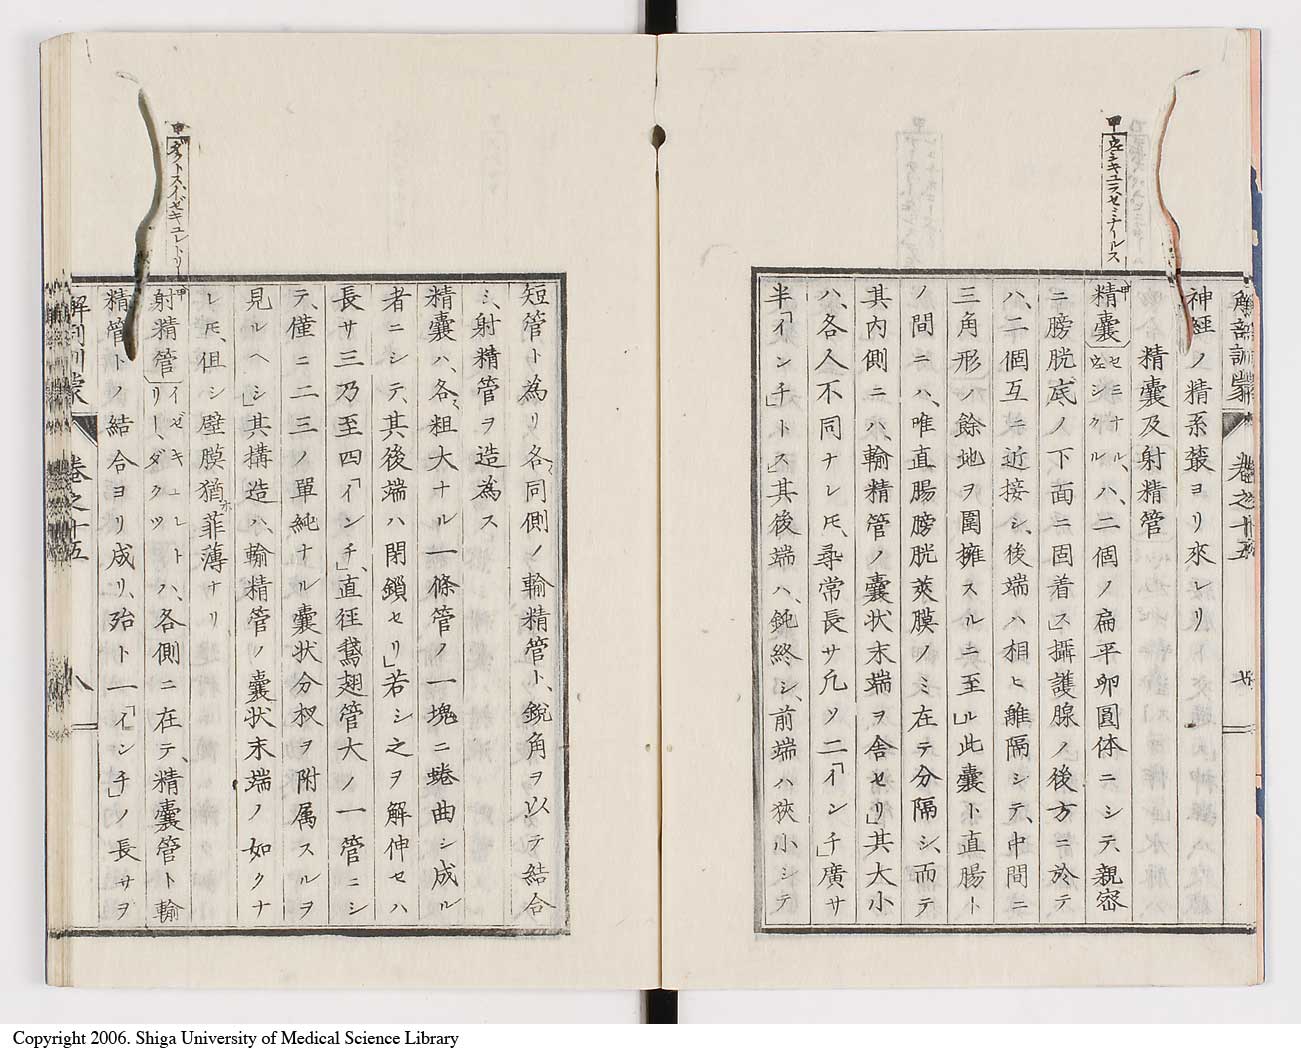 解剖訓蒙 卷之十五
神經ノ精系叢ヨリ來レリ
精囊及射精管
甲 精囊 セミナル、ハ、二個ノ扁平卵圓体ニシテ、親密
ニ膀胱底ノ下面ニ固着ス」攝護腺ノ後方ニ於テ
ハ、二個互ニ近接シ、後端ハ相ヒ離隔シテ、中間ニ
三角形ノ餘地ヲ圍擁スルニ至ル」此囊ト直腸ト
ノ間ニハ、唯直腸膀胱莢膜ノミ在テ分隔シ、而テ
其内側ニハ、輸精管ノ囊状末端ヲ舎セリ」其大小
ハ、各人不同ナレ𪜈、尋常長サ凡ソ二「インチ」廣サ
半「インチ」トス」其後端ハ、鈍終シ、前端ハ狹小シテ
甲 シキュラセミナールス
短管ト為リ各同側ノ輸精管ト、鋭角ヲ以テ結合
ミ、射精管ヲ造為ス
精囊ハ、各粗大ナル一條管ノ一塊ニ蜷曲シ成ル
者ニシテ、其後端ハ閉鎖セリ」若シ之ヲ解伸セハ
長サ三乃至四「インチ」、直徑鵞翅管大ノ一管ニシ
テ、僅ニ二三ノ單純ナル囊状分杈ヲ附属スルヲ
見ルヘシ」其構造ハ、輸精管ノ囊状末端ノ如クナ
レ𪜈、但シ壁膜猶ホ菲薄ナリ
甲 射精管 イゼキュレトリー、ダクツ ハ、各側ニ在テ、精囊管ト輸
精管トノ結合ヨリ成リ、殆ト一「インチ」ノ長サヲ
甲 ダクトス、イゼキュレトリー
卷之十五 八